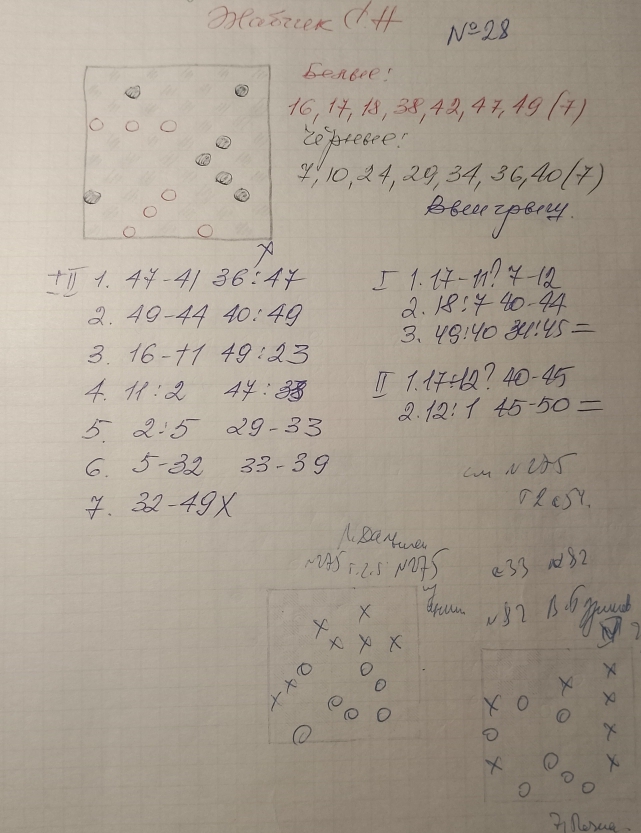 Жабчик С.Н
№28
Белые:
16, 17, 18, 38, 42, 47, 49 (7)
Чёрные:
7, 10, 24, 29, 34, 36, 40 (7)
Выигрыш.
+III 1. 47-41 36:47
2. 49-44 40:49
3. 16-11 49:23
4. 11:2 47:38
5. 2:5 29-33
6. 5-32 33-39
7. 32-49X
I 1. 17-11? 7-12
2. 18:7 40-44
3. 49:40 34:45 =
II 1. 17-12? 40-45
2. 12:1 45-50 =
см №275
т 2 с 54.
№275 т.2.5 №275
с33 №82
№82